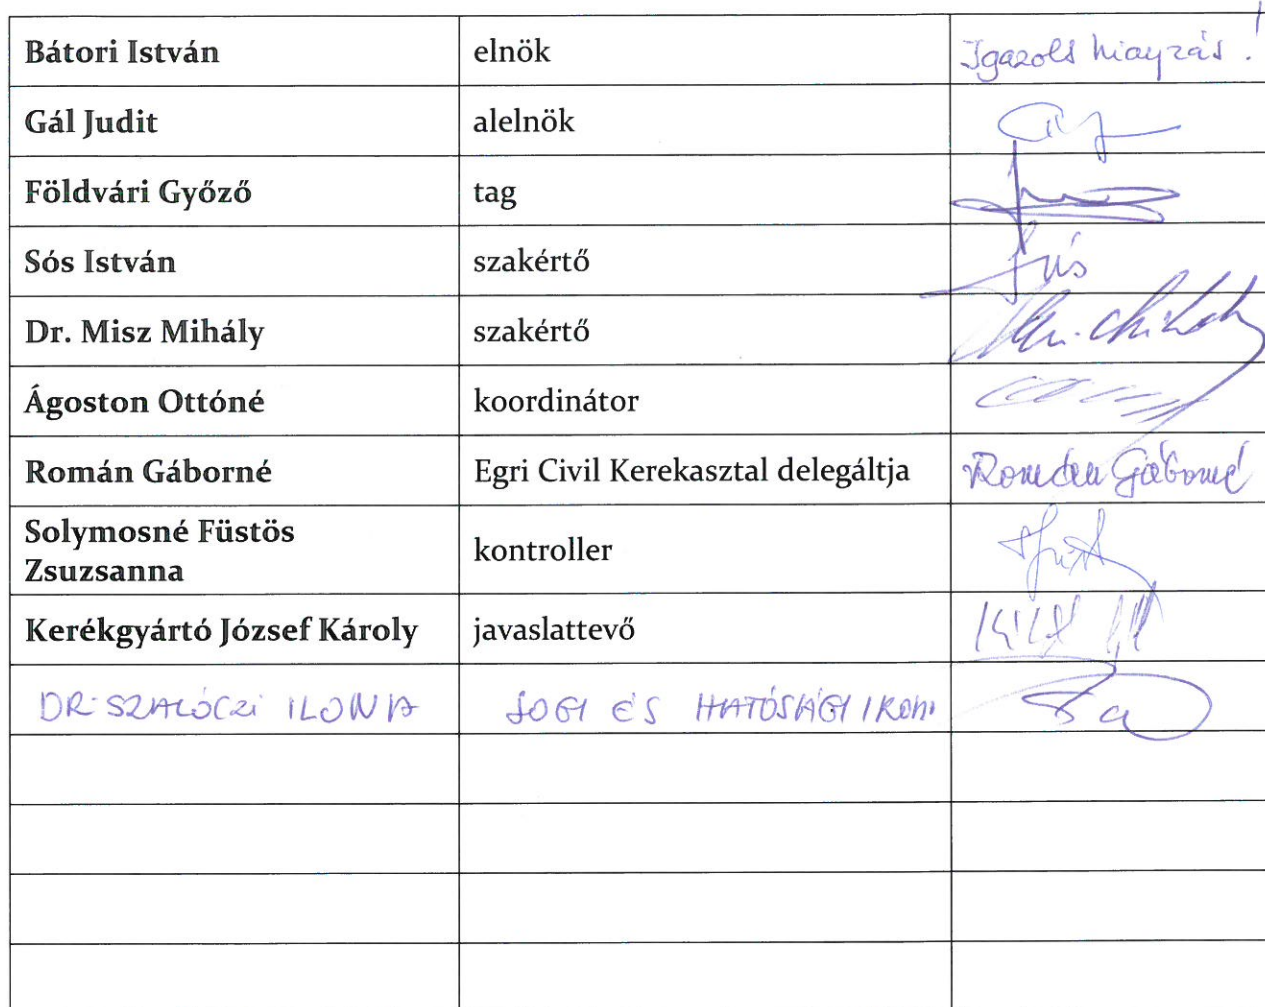 Bátori István elnök Igazolt hiányzás!
Gál Judit alelnök
Földvári Győző tag
Sós István szakértő Sós
Dr. Misz Mihály szakértő
Ágoston Ottóné koordinátor
Román Gáborné Egri Civil Kerekasztal delegáltja Román Gáborné
Solymosné Füstös
Zsuzsanna
kontroller
Kerékgyártó József Károly javaslattevő
DR. SZALÓCZI ILONA JOGI ÉS HATÓSÁGI IRODA